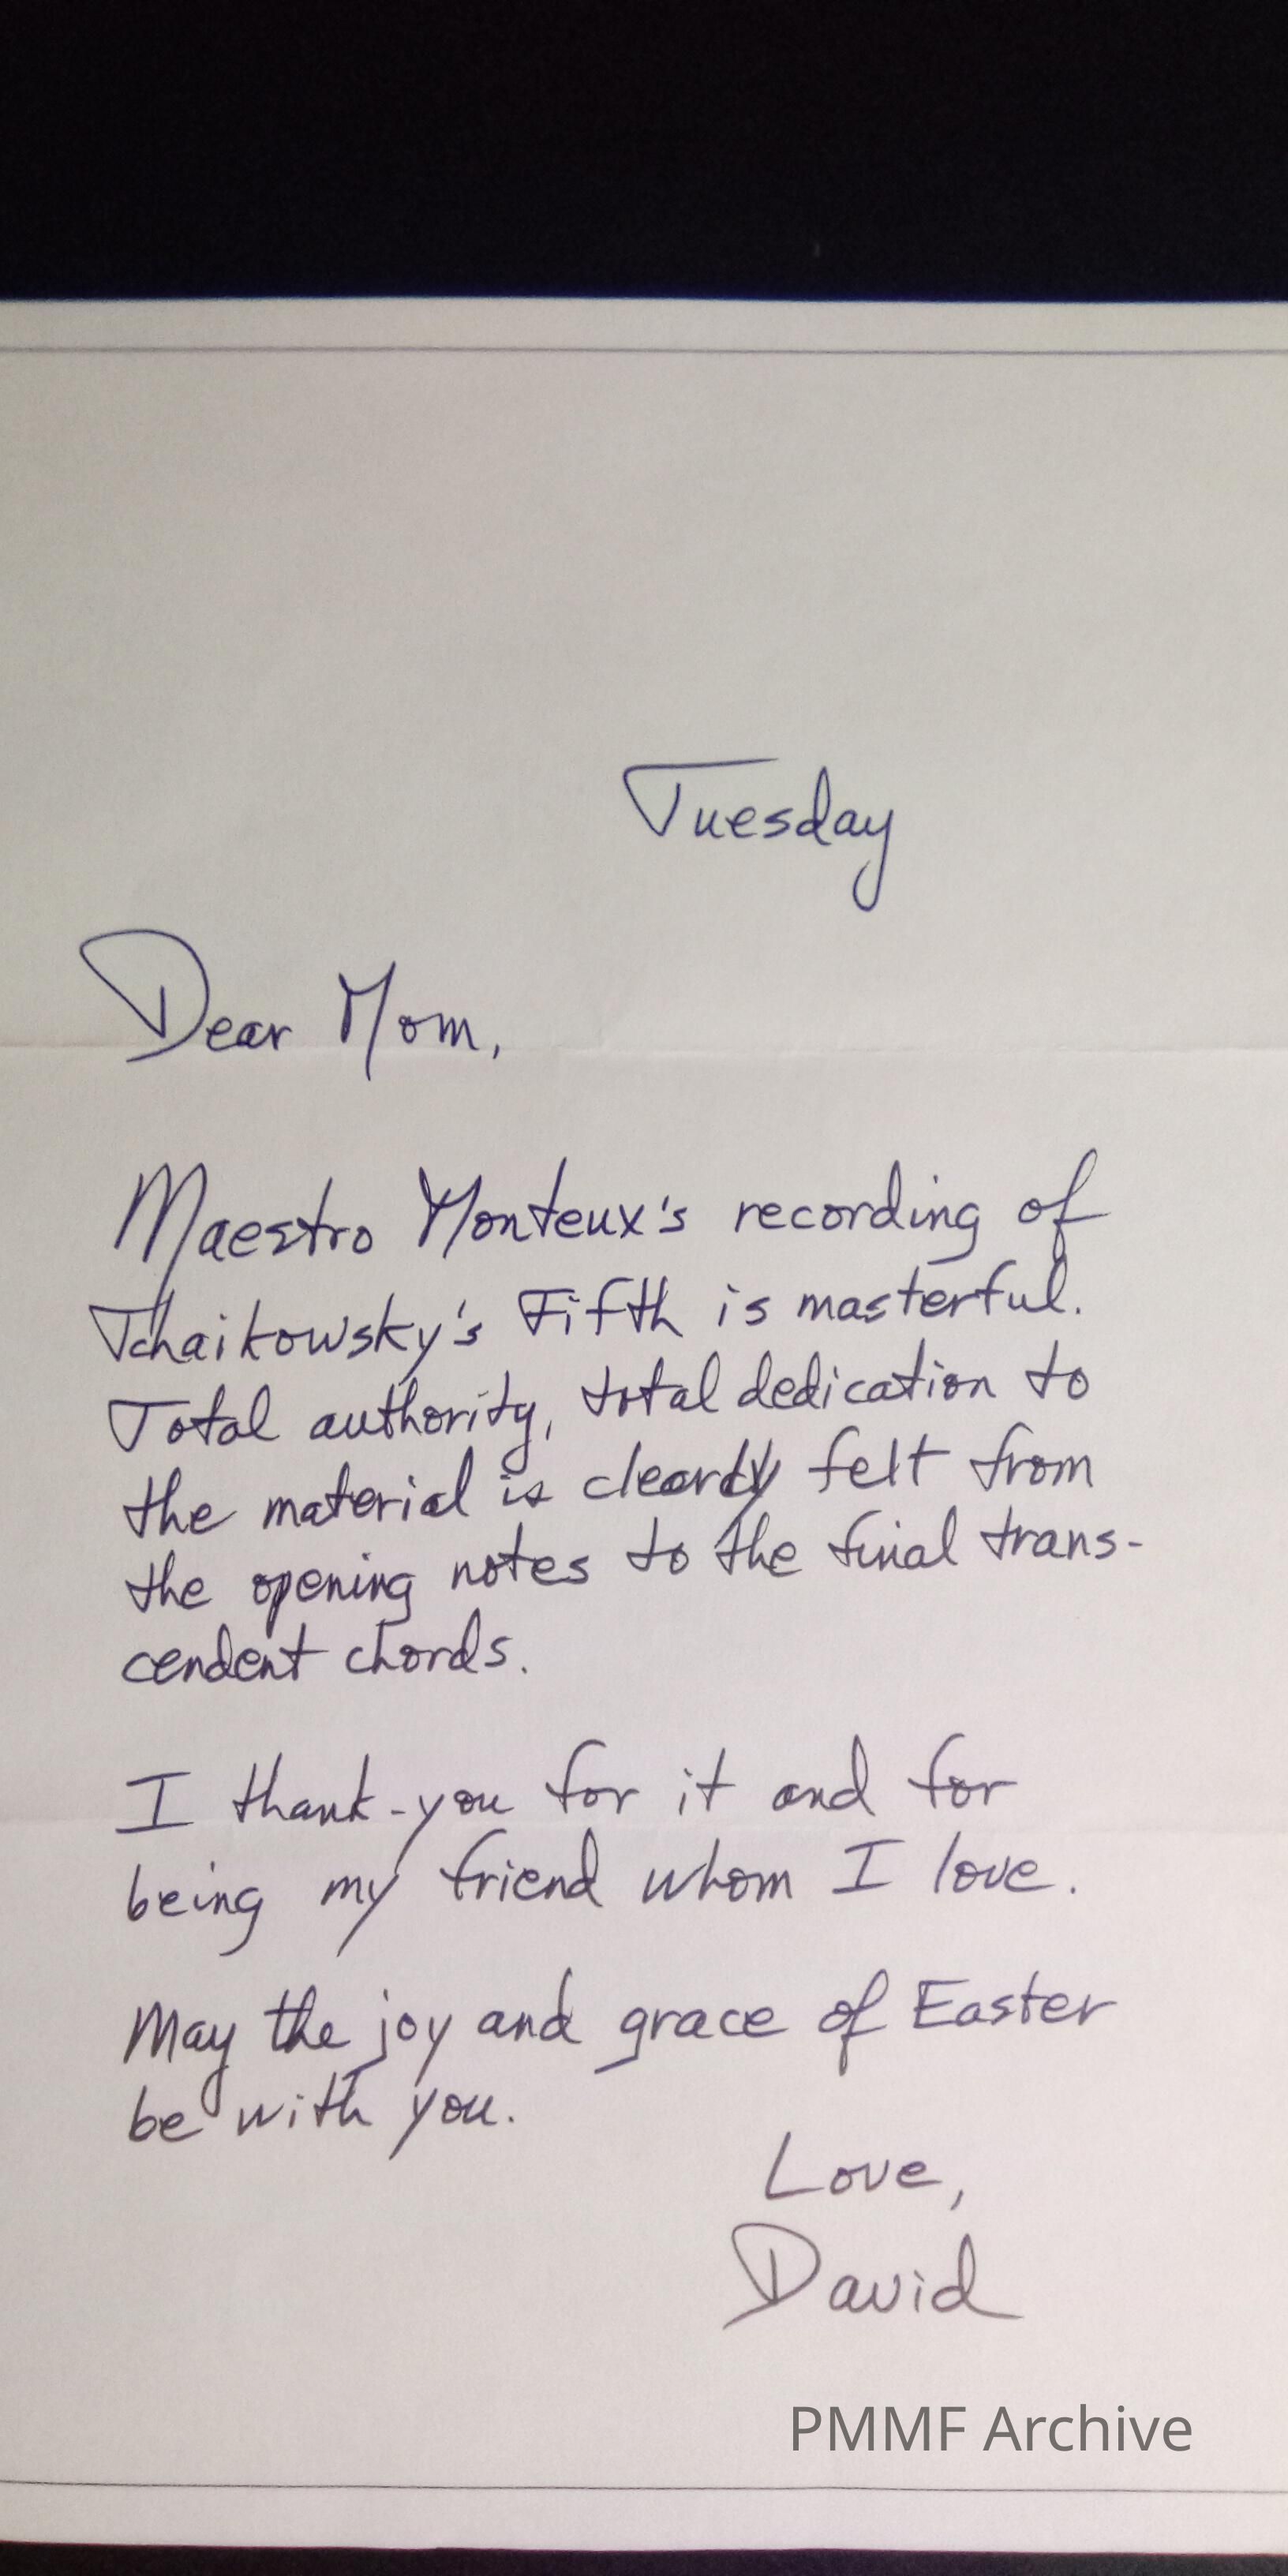 Tuesday
Dear Mom,
Maestro Monteux's recording of
Tchaikowsky's Fifth is masterful.
Total authority, total dedication to
the material is clearly felt from
the opening notes to the final trans-
cendent chords.
I thank-you for it and for
being my friend whom I love.
May the joy and grace of Easter
be with you.
Love,
David
PMMF Archive